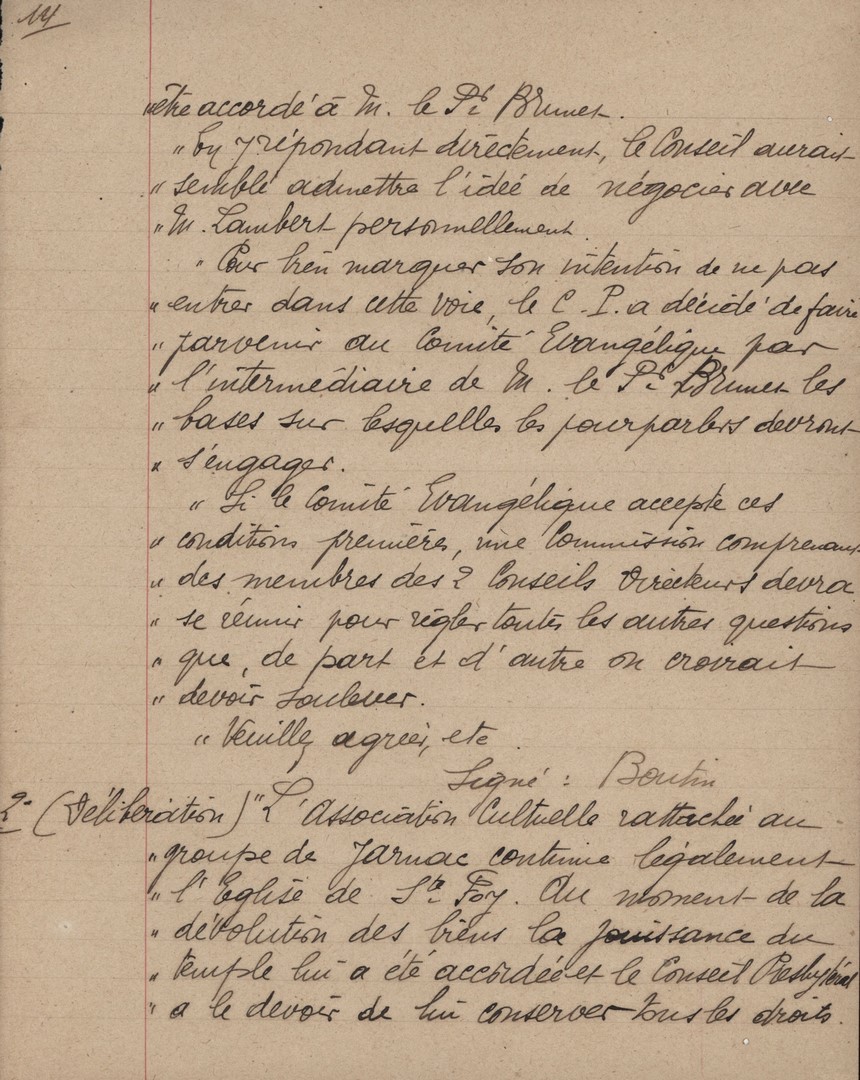 14
"être accordé à M. le Pr Brunet.
"En y répondant directement, le Conseil aurait
" semblé admettre l'idée de négocier avec
" M. Lambert personnellement
" Pour bien marquer son intention de ne pas
" entrer dans cette voie, le C. P. a décidé de faire
" parvenir au Comité Evangélique par
" l'intermédiaire de M. le Pr Brunet les
" bases sur lesquelles les pourparlers devront
" s'engager.
" Si le Comité Evangélique accepte ces
" conditions premières, une Commission comprenant
" des membres des 2 Conseils Directeurs devra
" se réunir pour régler toutes les autres questions
" que, de part et d'autre on croirait
" devoir soulever.
" Veuillez agréer, etc
Signé : Boutin
2° (Délibération) "L'Association Cultuelle rattachée au
" groupe de Jarnac continue légalement
" l'Eglise de Ste Foy. Au moment de la
" dévolution des biens la jouissance du
" temple lui a été accordée et le Conseil Presbytéral
" a le devoir de lui conserver tous les droits.